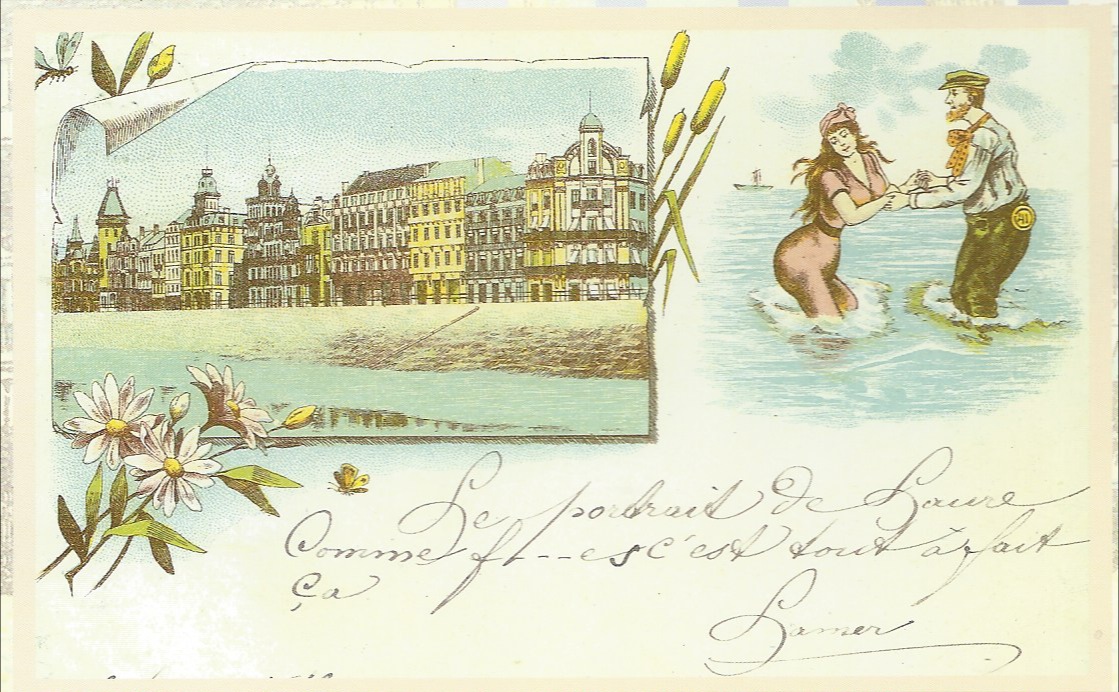 Le portrait de Laure
Comme f---es c'est tout à fait
ça
Lamer